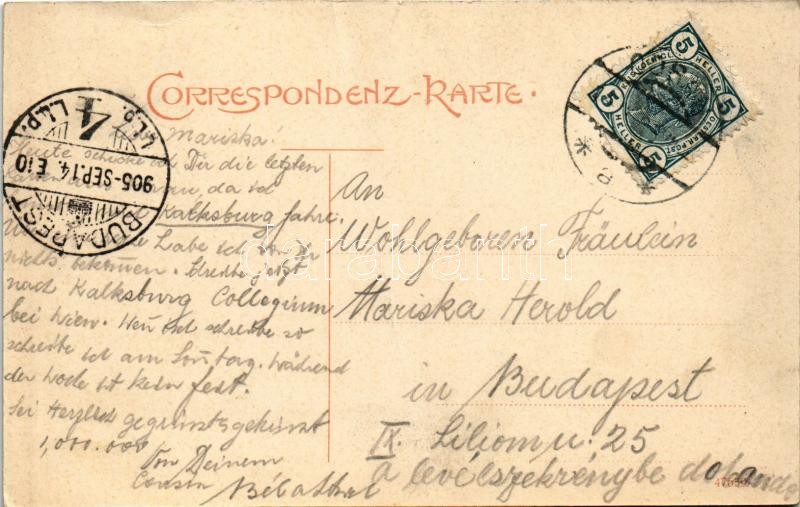 CORRESPONDENZ-KARTE.
5 5 5 5
HELLER HELLER
BUDAPEST
905-SEP.14. E10
4
Mariska!
Heute schicke ich Dir die letzten
da ich
Kalksburg fahre.
Labe ich von Dir
nichts bekommen. Schreibe jetzt
nach Kalksburg Collegium
bei Wien. Wen Du schreibe so
schreibe ich am Sontag. Während
der Woche ist kein fest.
Sei Herzlich gegrüsst gekisst
1,000.000
Von Deinem
Cousin Béla
An
Wohlgeboren Fräulein
Mariska Herold
in Budapest
IX. Liliom u. 25
a levélszekrénybe dobandó
darabanth